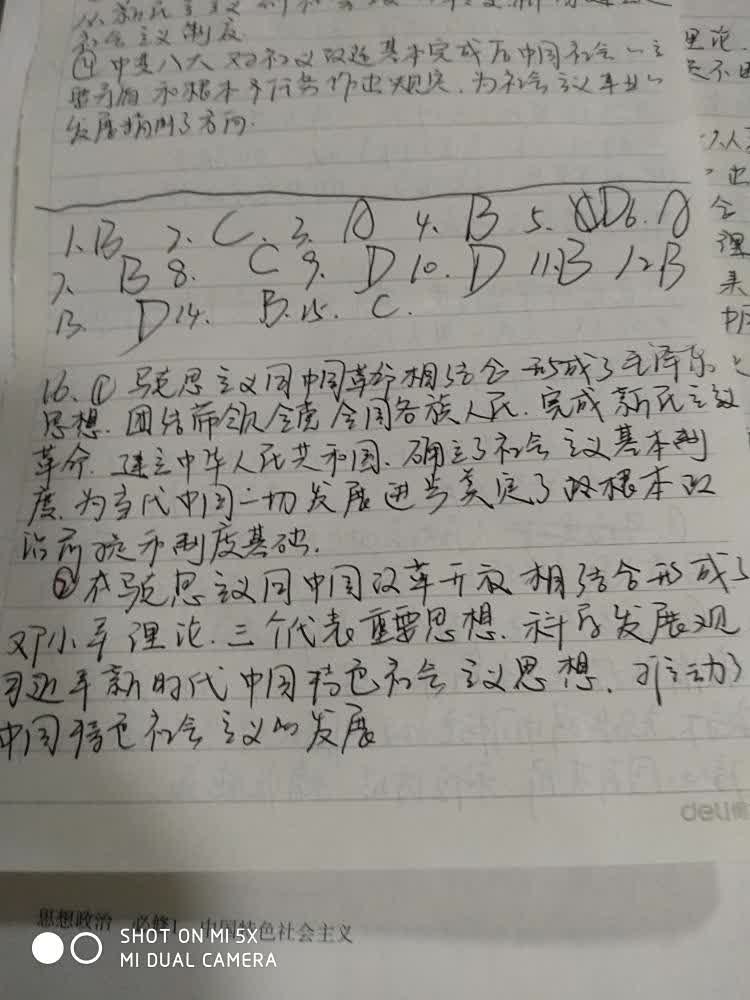 从新民主主义
社会主义制度
④中共八大 对社义改造基本完成后中国社会的主
要矛盾和根本任务作出规定,为社会主义事业的
发展指明了方向.
理论.
1.B 2. C. 3. A 4. B 5. D 6. A
7. B 8. C 9. D 10. D 11.B 12B
13. D 14. B. 15. C.
16.①马克思主义同中国革命相结合 形成了毛泽东
思想. 团结带领全党全国各族人民. 完成新民主主义
革命. 建立中华人民共和国. 确立了社会主义基本制
度. 为当代中国一切发展进步奠定了根本政
治前提和制度基础.
②马克思主义同中国改革开放相结合形成了
邓小平理论.三个代表重要思想.科学发展观
习近平新时代中国特色社会主义思想. 推动了
中国特色社会主义的发展
deli
思想政治 必修1 中国特色社会主义
SHOT ON MI 5X
MI DUAL CAMERA